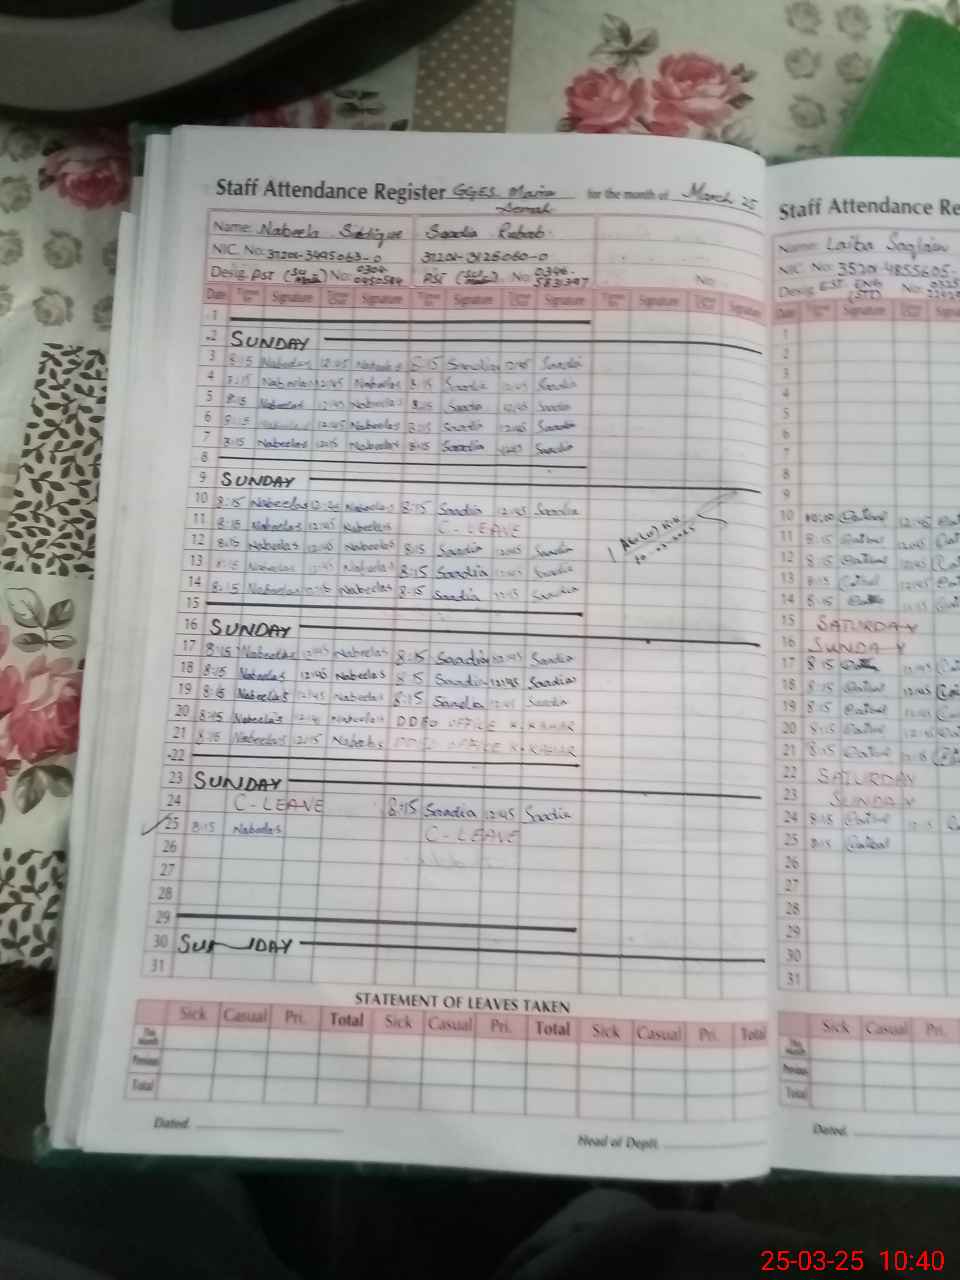 Staff Attendance Register GGES Maria for the month of March 25
Name: Nabeela Siddique Saadia Rubab
NIC. No: 37201-3495063-0 37201-3126060-0
Desig. PST No: 0304- PST No: 0346-
0450584 5831397
Date Signature Signature Signature Signature Signature Signature
1
2 SUNDAY
3 8:15 Nabeelas 12:45 Nabeelas 8:15 Saadia 12:45 Saadia
4 8:15 Nabeelas 12:45 Nabeelas 8:15 Saadia 12:45 Saadia
5 8:15 Nabeelas 12:45 Nabeelas 8:15 Saadia 12:45 Saadia
6 8:15 Nabeelas 12:45 Nabeelas 8:15 Saadia 12:45 Saadia
7 8:15 Nabeelas 12:15 Nabeelas 8:15 Saadia 12:45 Saadia
8
9 SUNDAY
10 8:15 Nabeelas Nabeelas 8:15 Saadia 12:45 Saadia
11 8:15 Nabeelas 12:45 Nabeelas C-LEAVE
12 8:15 Nabeelas 12:45 Nabeelas 8:15 Saadia 12:45 Saadia
13 8:15 Nabeelas 12:45 Nabeelas 8:15 Saadia 12:45 Saadia
14 8:15 Nabeelas Nabeelas 8:15 Saadia 12:15 Saadia
15
16 SUNDAY
17 8:15 Nabeelas 12:45 Nabeelas 8:15 Saadia 12:45 Saadia
18 8:15 Nabeelas 12:45 Nabeelas 8:15 Saadia 12:45 Saadia
19 8:15 Nabeelas 12:45 Nabeelas 8:15 Saadia 12:45 Saadia
20 8:15 Nabeelas Nabeelas OFFICE K.
21 8:15 Nabeelas 12:15 Nabeelas OFFICE K.
22
23 SUNDAY
24 C-LEAVE 8:15 Saadia 12:45 Saadia
25 8:15 Nabeelas C-LEAVE
26
27
28
29
30 SUNDAY
31
STATEMENT OF LEAVES TAKEN
Sick Casual Pri. Total Sick Casual Pri. Total Sick Casual Pri. Total
This Month
Previous
Total
Dated. Head of Deptt.
Staff Attendance Re
Name: Laiba Saqlain
NIC. No: 35201-4855605-
Desig. EST ENG No: 0325
Date Signature
1
2
3
4
5
6
7
8
9
10 12:45
11 8:15 12:45
12 8:15
13 8:15 12:45
14 8:15
15 SATURDAY
16 SUNDAY
17 8:15
18 8:15 12:45
19 8:15
20 8:15
21 8:15
22 SATURDAY
23 SUNDAY
24 8:15
25 8:15
26
27
28
29
30
31
Sick Casual Pri.
This Month
Previous
Total
Dated.
25-03-25 10:40